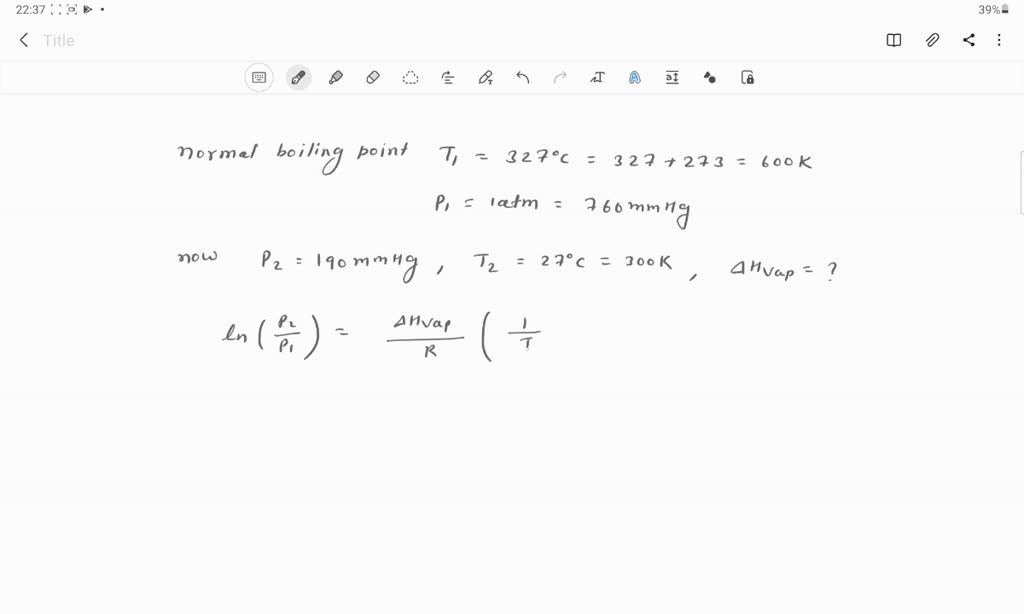 22:37
39%
Title
normal boiling point T₁ = 327°C = 327 + 273 = 600K
P₁ = 1atm = 760mmHg
now P₂ = 190mmHg, T₂ = 27°C = 300K, ΔHvap = ?
ln(P₂/P₁) = ΔHvap/R (1/T